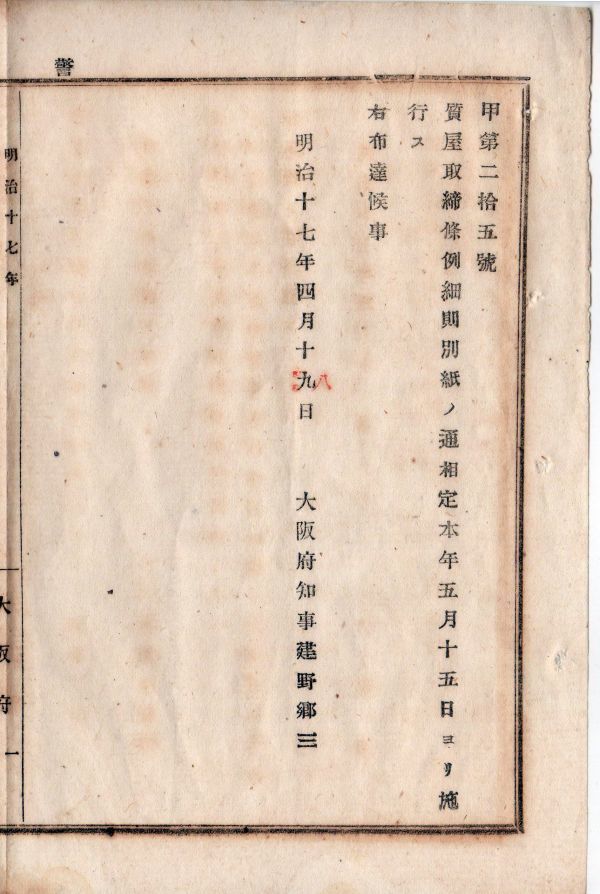 警
甲第二拾五號
質屋取締條例細則別紙ノ通相定本年五月十五日ヨリ施
行ス
右布達候事
明治十七年四月十九日 大阪府知事建野郷三
八
明治十七年
大阪府 一